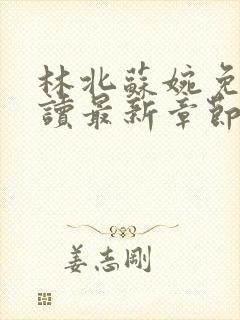 林北蘇婉免
讀最新章節
姜志剛